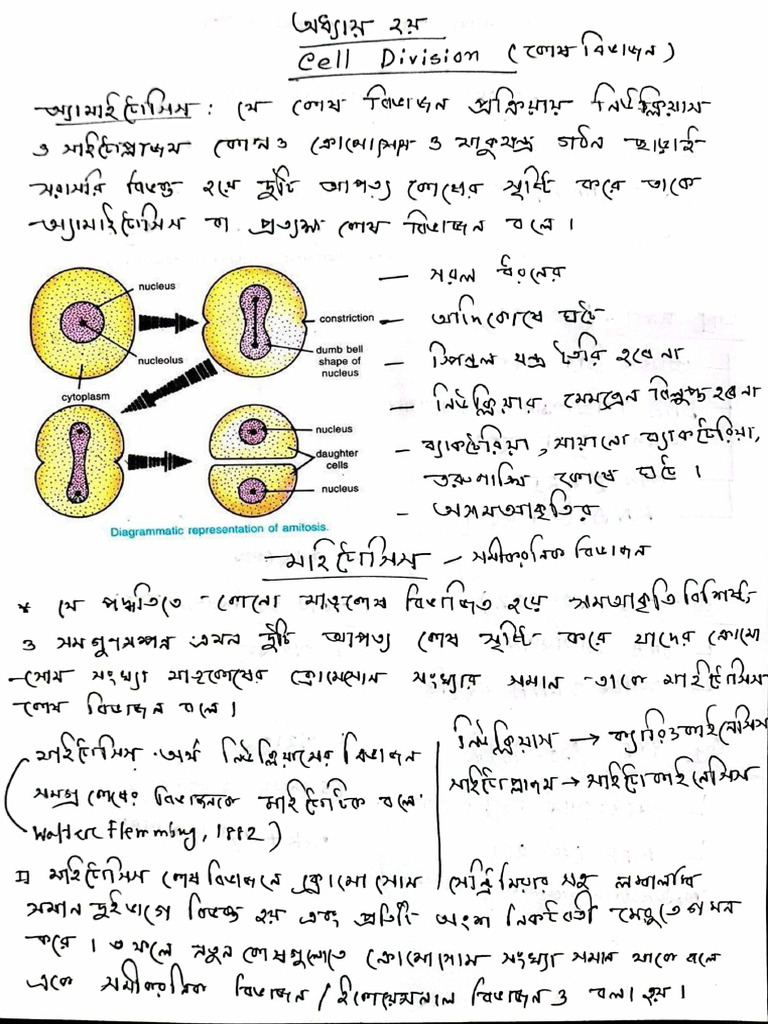 অধ্যায় ২য়
Cell Division (কোষ বিভাজন)
অ্যামাইটোসিস : যে কোষ বিভাজন প্রক্রিয়ায় নিউক্লিয়াস
ও সাইটোপ্লাজম কোনও ক্রোমোসোম ও মাকুযন্ত্র গঠন ছাড়াই
সরাসরি বিভক্ত হয়ে দুটি আপত্য কোষের সৃষ্টি করে তাকে
অ্যামাইটোসিস বা প্রত্যক্ষ কোষ বিভাজন বলে।
nucleus
nucleolus
cytoplasm
constriction
dumb bell
shape of
nucleus
nucleus
daughter
cells
nucleus
Diagrammatic representation of amitosis.
– সরল ধরনের
– আদিকোষে ঘটে
– স্পিন্ডল যন্ত্র তৈরি হবে না
– নিউক্লিয়ার মেমব্রেন বিলুপ্ত হবে না
– ব্যাকটেরিয়া, সায়ানো ব্যাকটেরিয়া,
তরুণাস্থি কোষে ঘটে।
– অসমআকৃতির
মাইটোসিস – সমীকরনিক বিভাজন
* যে পদ্ধতিতে কোনো মাতৃকোষ বিভাজিত হয়ে সমআকৃতি বিশিষ্ট
ও সমগুণসম্পন্ন এমন দুটি আপত্য কোষ সৃষ্টি করে যাদের ক্রোমো
-সোম সংখ্যা মাতৃকোষের ক্রোমোসোম সংখ্যার সমান তাকে মাইটোসিস
কোষ বিভাজন বলে।
মাইটোসিস অর্থ নিউক্লিয়াসের বিভাজন
সমগ্র কোষের বিভাজনকে মাইটোটিক বলে
Walter Flemmbng, 1882)
নিউক্লিয়াস → ক্যারিওকাইনেসিস
সাইটোপ্লাজম → সাইটোকাইনেসিস
মাইটোসিস কোষ বিভাজনে ক্রোমোসোম সেন্ট্রোমিয়ার সহ লম্বালম্বি
সমান দুইভাগে বিভক্ত হয় এবং প্রতিটি অংশ নিকটবর্তী মেরুতে গমন
করে। এ ফলে নতুন কোষগুলোতে ক্রোমোসোম সংখ্যা সমান থাকে বলে
একে সমীকরনিক বিভাজন / ইকোয়েশনাল বিভাজন ও বলা হয়।